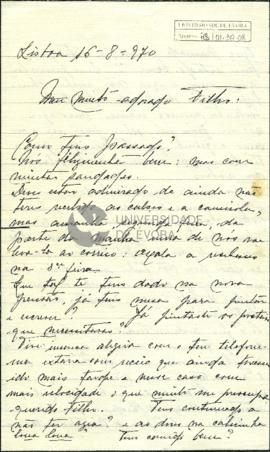 UNIVERSIDADE DE ÉVORA
Lisboa 16-8-970
Meu muito adorado Filho:
Como tens passado?
Nós felizmente bem: mas com
muitas saudades.
Deves estar admirado de ainda não
teres recebido as calças e a camisola,
mas amanhã feira, da
parte da manhã uma de nós vai
levá-la ao correio: oxalá a recebas
na 3ª feira.
Que tal te tens dado na nova
pensão, já tens mesa para pintares
e veres? Já pintaste os postais
que necessitavas?
Tive imensa alegria com o teu telefone-
ma estava com receio que ainda fosses
mais tarde e nesse caso com
mais velocidade o que muito me preocupa
querido Filho. Tens continuado a
não ter água? e as dores na cabecinha
Tens comido bem?
UNIVERSIDADE
DE ÉVORA